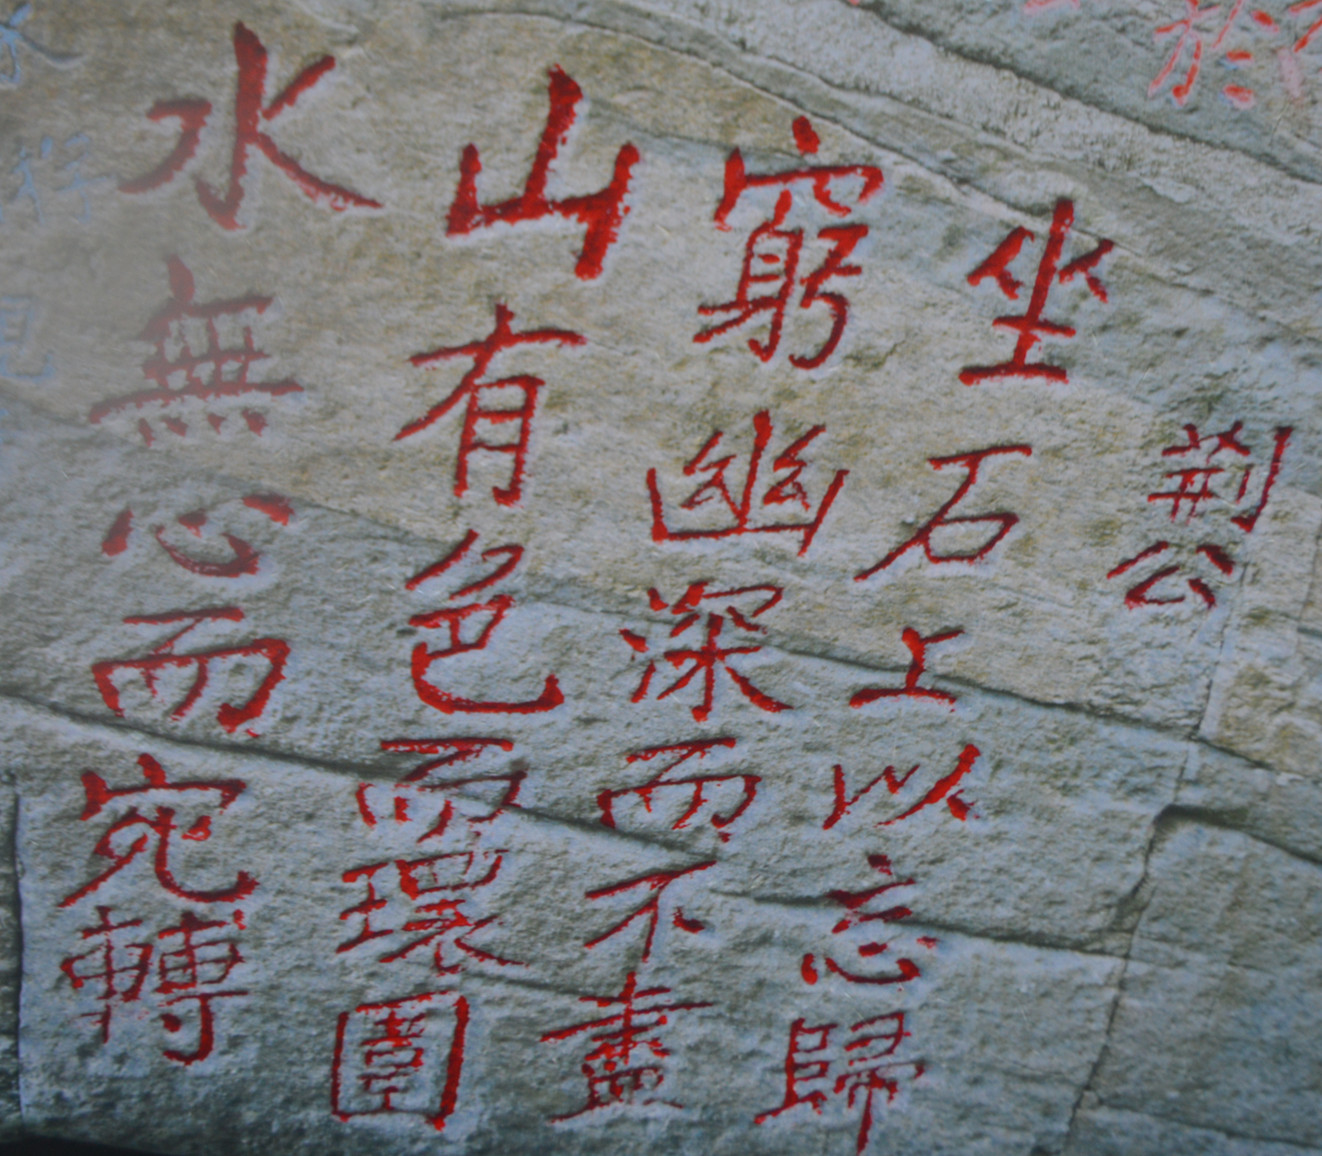 水無心而宛轉
山有色而環圍
窮幽深而不盡
坐石上以忘歸
荊公
於